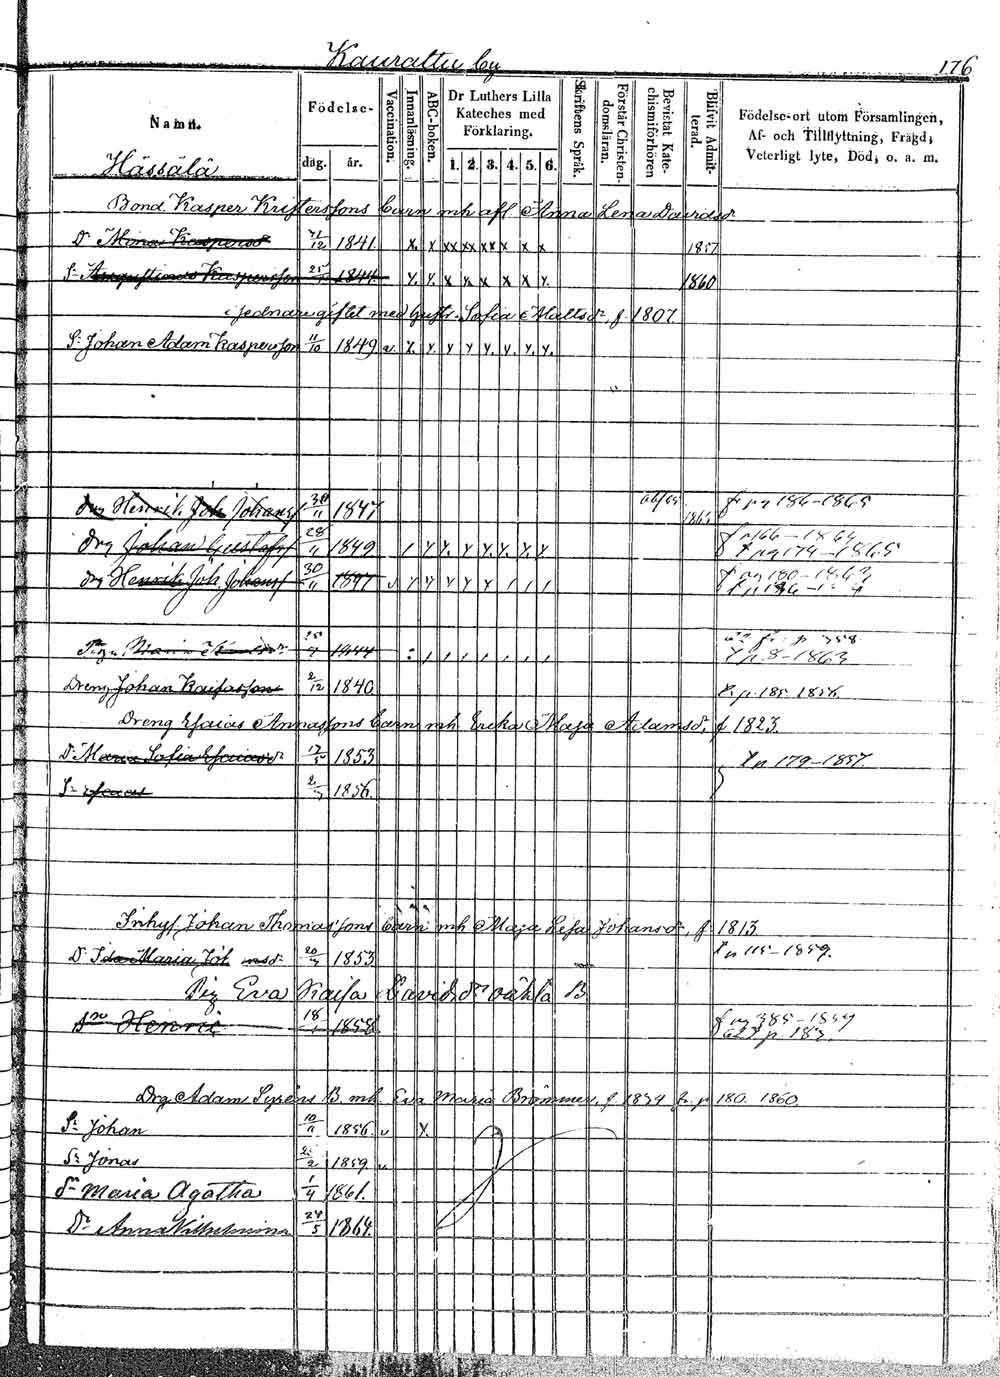 Kaurattu by 176
Namn. Födelse- dag. år. Vaccination. Innanläsning. ABC-boken. Dr Luthers Lilla Kateches med Förklaring. 1. 2. 3. 4. 5. 6. Skriftens Språk. Förstår Christendomsläran. Bevistat Katechismiförhören Blifvit Admitterad. Födelse-ort utom Församlingen, Af- och Tillflyttning, Frägd, Veterligt lyte, Död, o. a. m.
Hässälä
Bond. Kasper Kristerssons barn mh afl. Anna Lena Davidsdr
Dr Mina Kaspersdr 31/12 1841. x x xx xx xx x x x 1857
Sn Augustinus Kaspersson 25 1844 x x x x x x x x 1860
i sednare giftet med Gustv. Sofia Mattsdr f 1807.
Sn Johan Adam Kaspersson 11/10 1849 v. x x x x x x x x
Drg Henrik Joh Johanss 30/11 1847 1865 f pg 186-1865
Drg Johan Gustafss 28/11 1849 / x x x x x x x f p 166-1864
t pg 174-1865
Drg Henrik Joh. Johanss 30/11 1847 v x x x x x / / / f pg 180-1863
Piga Maria 1844 t p 8-1863
Dreng Johan Kaifasson 2/12 1840. t. p. 185 1856.
Dreng Esaias Annassons barn mh. Ericka Maja Adamsdr, f 1823.
Dr Maria Sofia Esaiasdr 17/5 1853 t p 179-1857.
Sn Esaias 1856.
Inhys. Johan Thomassons barn mh Maja Lesa Johansdr, f 1813
Dr Ida Maria Joh nsdr 20 1853 t p 115-1859.
Pig Eva Kaisa Davidsdr oäkta B
Sn Henric 18 1858 f pg 385-1859
p 183.
Drg Adam Syréns B. mh. Eva Maria Brännmer, f 1834 fr. p 180. 1860.
Sn Johan 10/11 1856. v x
Sn Jonas 1859 v
Dr Maria Agatha 1/4 1861.
Dr Anna Wilhelmina 24/5 1864.